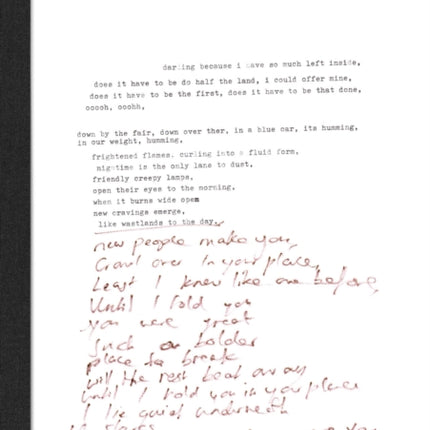 darling because i have so much left inside,
does it have to be do half the land, i could offer mine,
does it have to be the first, does it have to be that done,
ooooh, ooohh,
down by the fair, down over ther, in a blue car, its humming,
in our weight, humming,
frightened flames. curling into a fluid form,
nightime is the only lane to dust,
friendly creepy lamps,
open their eyes to the morning,
when it burns wide open
new cravings emerge,
like wastlands to the day,
new people make you,
Crawl over in your place,
Least I knew like one before,
Until I told you
you were great
Such a bolder
place to break
will the rest beat
until I told you in your place
I lie quiet underneath